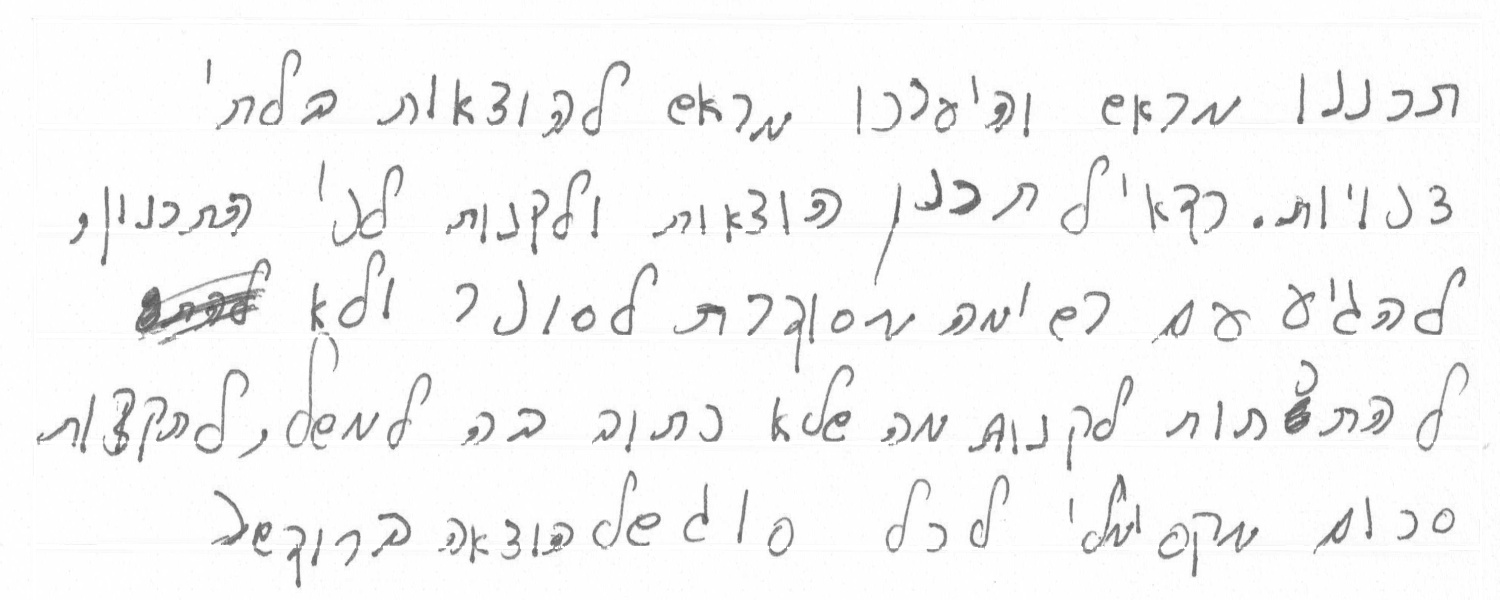 תכננו מראש והיערכו מראש להוצאות בלתי
צפויות. כדאי לתכנן הוצאות ולקנות לפי התכנון,
להגיע עם רשימה מסודרת לסופר ולא
להתפתות לקנות מה שלא כתוב בה למשל, להקצות
סכום מקסימלי לכל סוג של הוצאה ברוקשכ